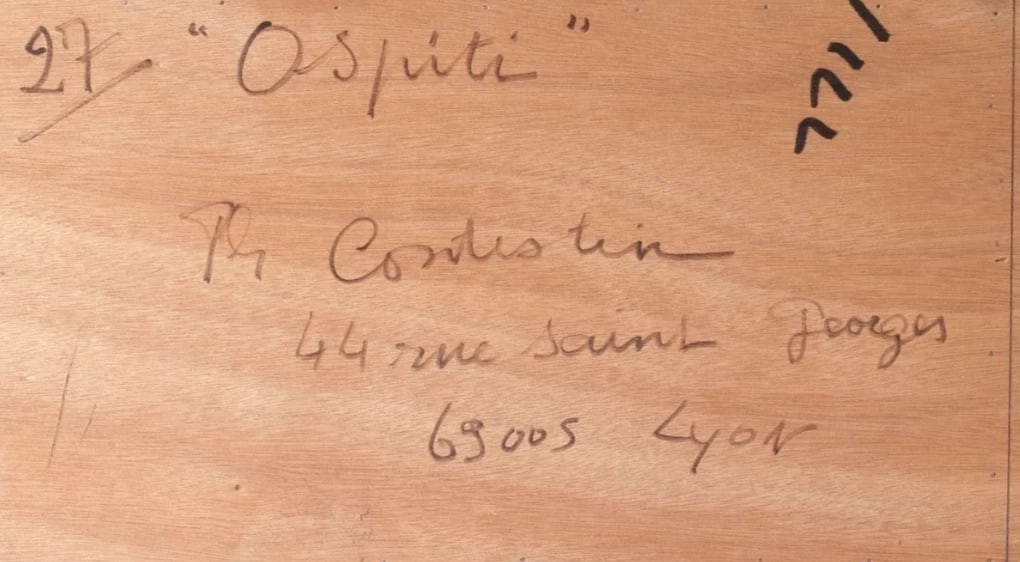 27/ "Ospiti"
Ph
44 rue saint Georges
69005 Lyon